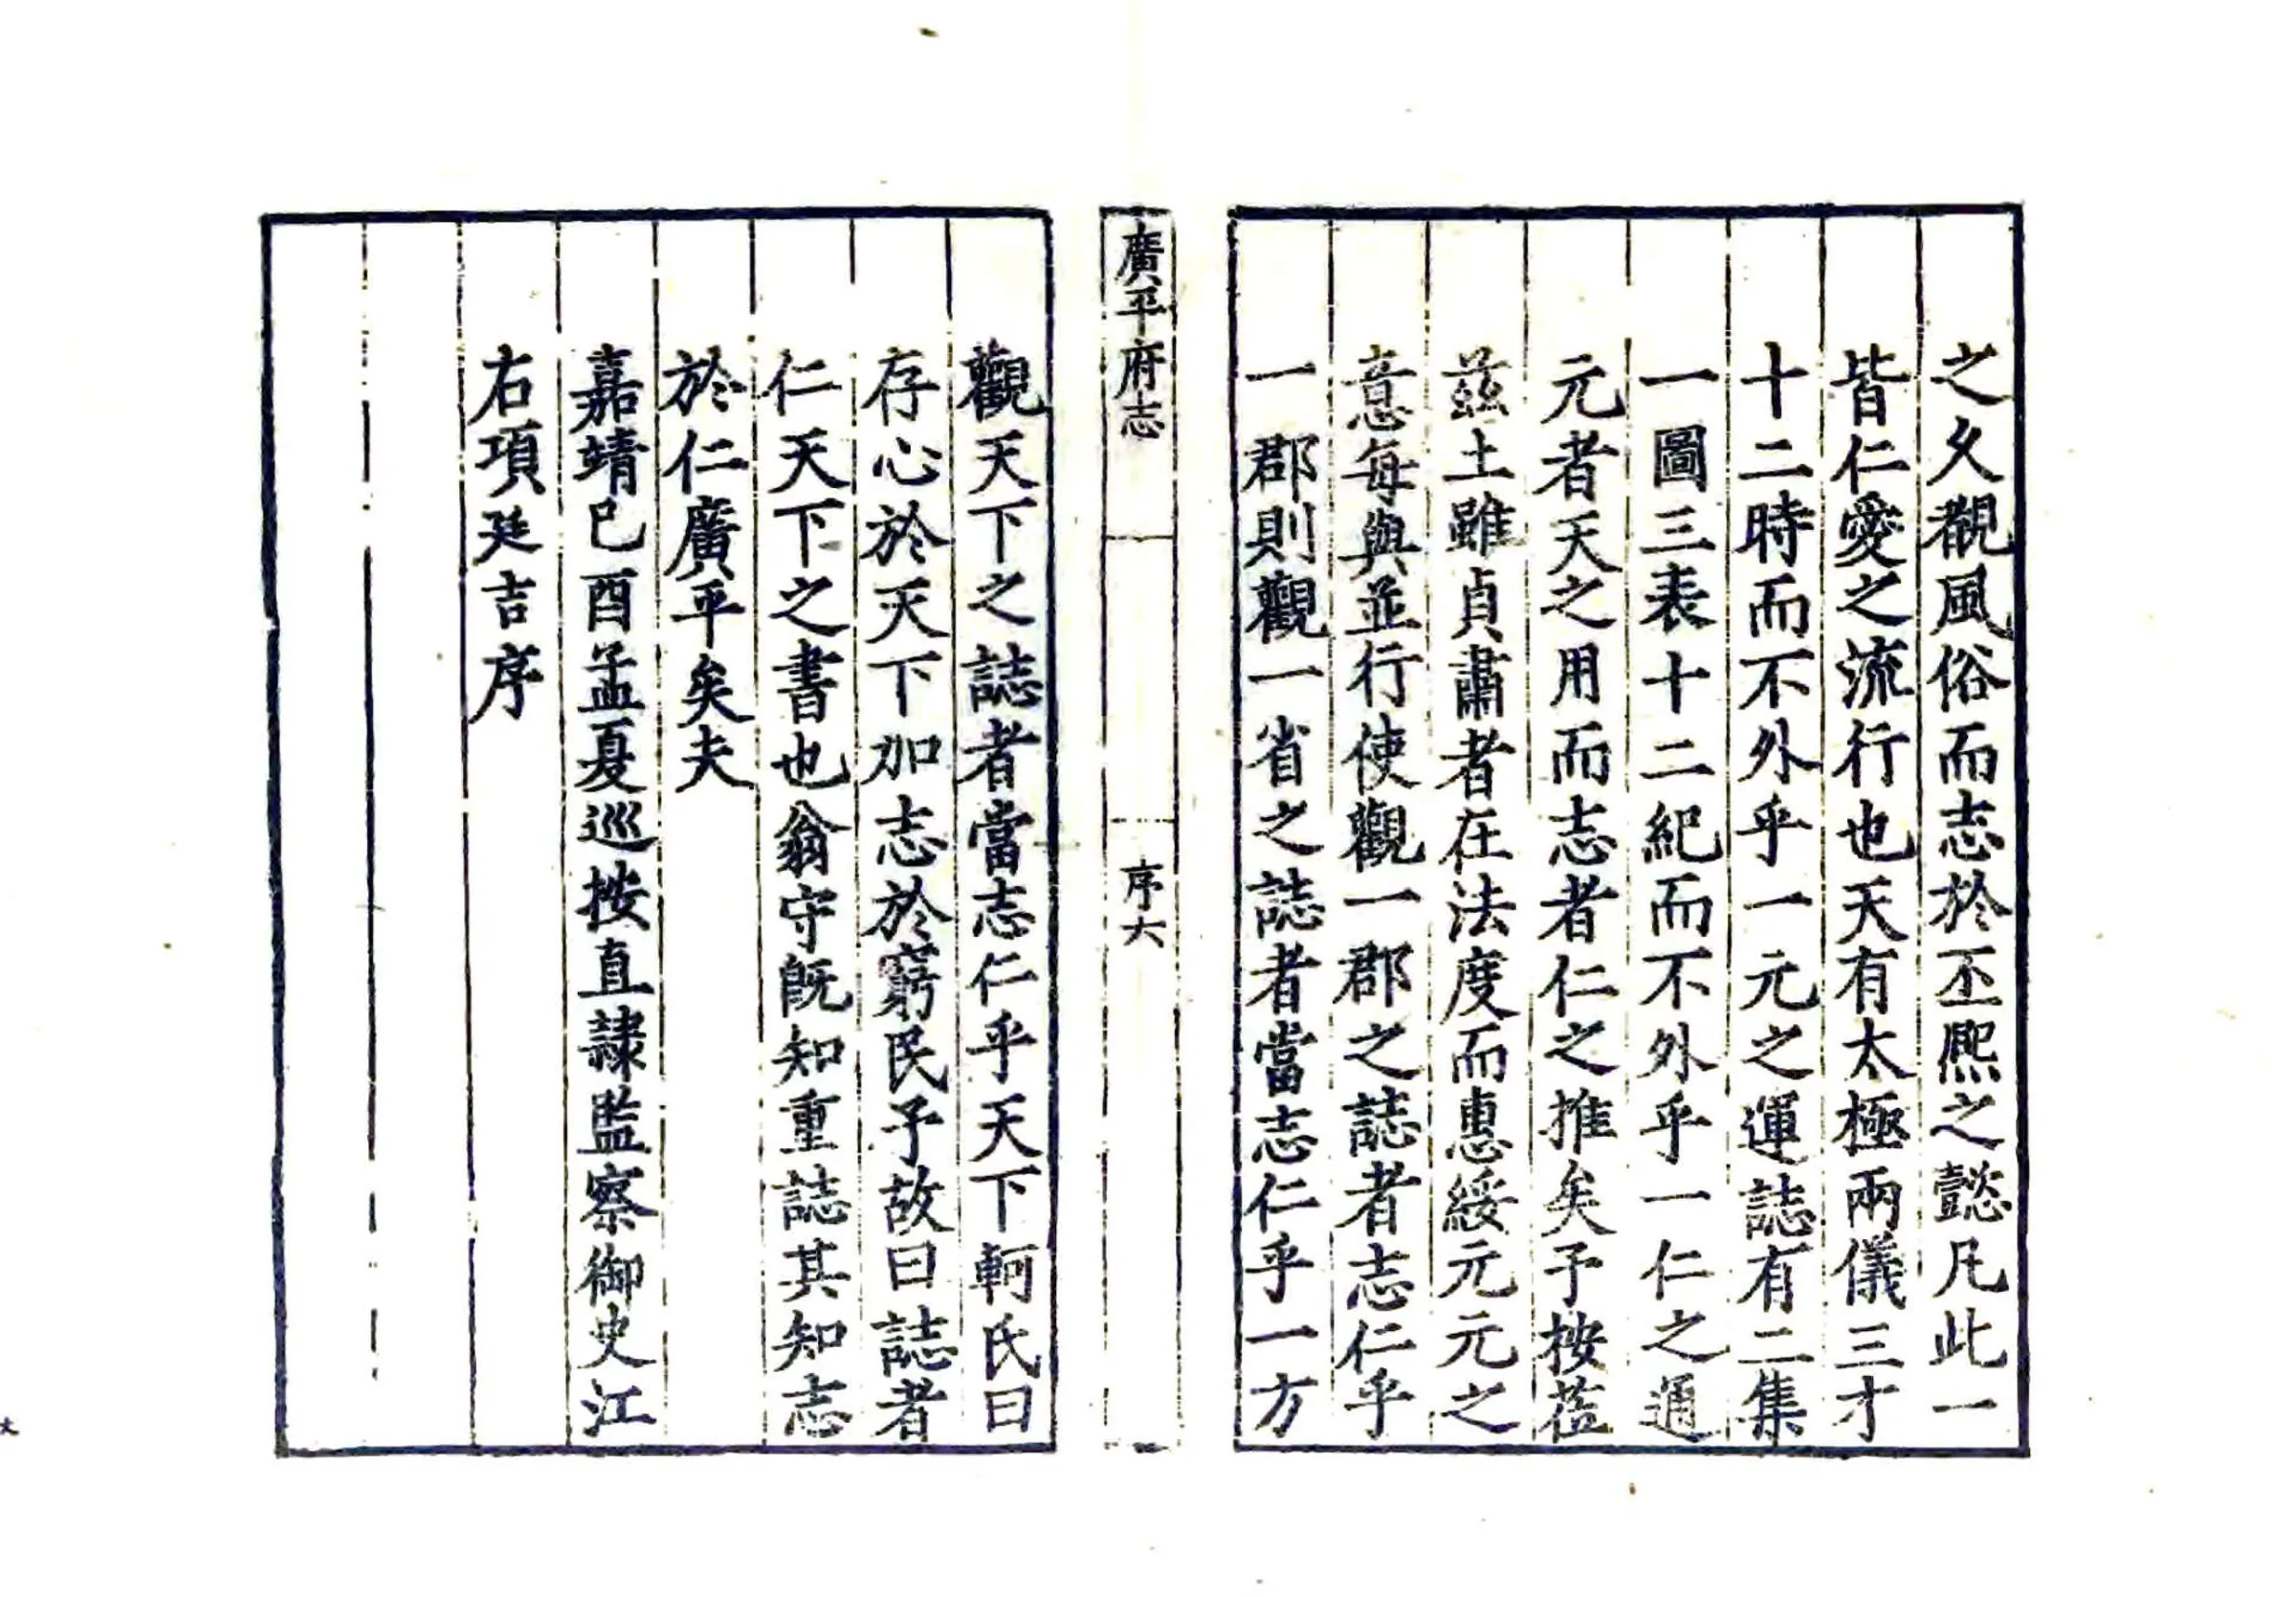 之久觀風俗而志於丕熈之懿凡此一
皆仁愛之流行也天有太極兩儀三才
十二時而不外乎一元之運誌有二集
一圖三表十二紀而不外乎一仁之通
元者天之用而志者仁之推矣予按莅
茲土雖貞肅者在法度而惠綏元元之
意每與並行使觀一郡之誌者志仁乎
一郡則觀一省之誌者當志仁乎一方
廣平府志
序六
觀天下之誌者當志仁乎天下軻氏曰
存心於天下加志於窮民予故曰誌者
仁天下之書也翁守旣知重誌其知志
於仁廣平矣夫
嘉靖己酉孟夏巡按直隸監察御史江
右項廷吉序